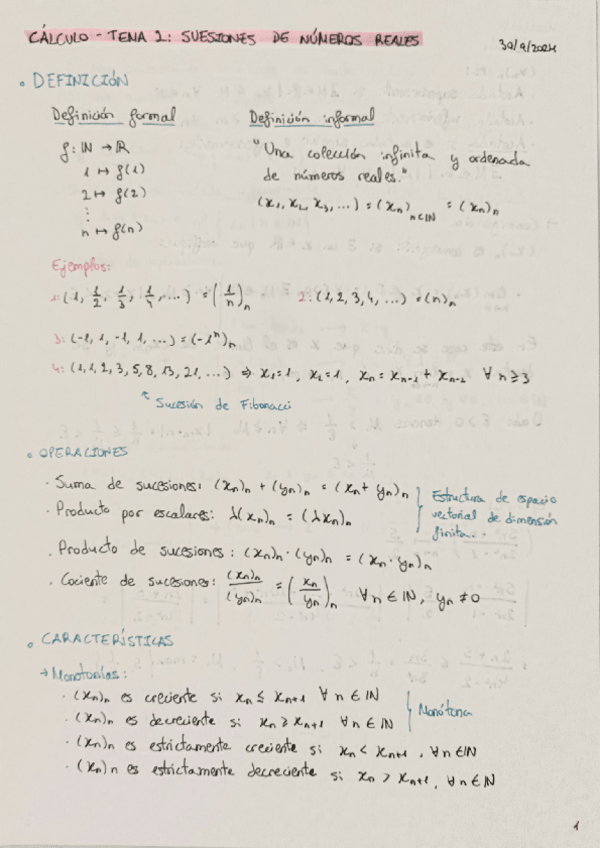 CÁLCULO - TEMA 1: SUESIONES DE NÚMEROS REALES 30/9/2024
• DEFINICIÓN
Definición formal Definición informal
f: ℕ → ℝ
"Una colección infinita y ordenada
1 ↦ f(1)
de números reales."
2 ↦ f(2)
(x₁, x₂, x₃, ...) = (xₙ)ₙ∈ℕ = (xₙ)ₙ
⋮
n ↦ f(n)
Ejemplos:
1: (1, 1/2, 1/3, 1/4, ...) = (1/n)ₙ 2: (1, 2, 3, 4, ...) = (n)ₙ
3: (-1, 1, -1, 1, ...) = (-1ⁿ)ₙ
4: (1, 1, 2, 3, 5, 8, 13, 21, ...) ⇒ x₁=1, x₂=1, xₙ = xₙ₋₁ + xₙ₋₂ ∀ n ≥ 3
↖ Sucesión de Fibonacci
• OPERACIONES
· Suma de sucesiones: (xₙ)ₙ + (yₙ)ₙ = (xₙ + yₙ)ₙ
Estructura de espacio
· Producto por escalares: λ(xₙ)ₙ = (λxₙ)ₙ
vectorial de dimensión
finita.
· Producto de sucesiones: (xₙ)ₙ · (yₙ)ₙ = (xₙ · yₙ)ₙ
· Cociente de sucesiones: (xₙ)ₙ/(yₙ)ₙ = (xₙ/yₙ)ₙ ∀ n ∈ ℕ, yₙ ≠ 0
• CARACTERÍSTICAS
→ Monotonías:
· (xₙ)ₙ es creciente si xₙ ≤ xₙ₊₁ ∀ n ∈ ℕ
Monótona
· (xₙ)ₙ es decreciente si xₙ ≥ xₙ₊₁ ∀ n ∈ ℕ
· (xₙ)ₙ es estrictamente creciente si xₙ < xₙ₊₁, ∀ n ∈ ℕ
· (xₙ)ₙ es estrictamente decreciente si xₙ > xₙ₊₁, ∀ n ∈ ℕ
1